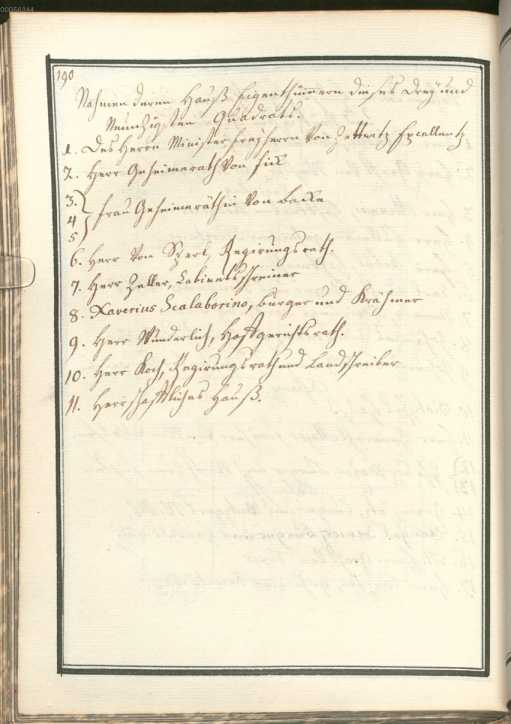 00056344
190
Nahmen deren Hauß Eigenthümern dieses Dreÿ und
Neunzigsten Quadrats.
1. Des Herrn Minister Freÿherrn von Zettwitz Excellentz
2. Herr Geheimerath von Fick
3.
4 } Frau Geheimeräthin von Becke
5
6. Herr von Stzerl, Regirungsrath.
7. Herr Zeller, Cabinetsschreiner
8. Xaverius Scalaborino, burger und Krähmer
9. Herr Wunderlich, Hofgerichtsrath.
10. Herr Koch, Regirungsrath und Landschreiber
11. Herrschaftliches Hauß.